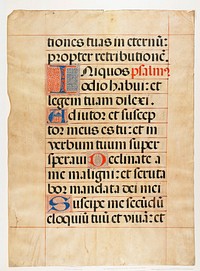 tiones tuas in eternū:
propter retributionē.
INiquos psalmꝰ
odio habui: et
legem tuam dilexi.
Adiutor et suscep
tor meus es tu: et in
verbum tuum super
speraui Declinate a
me maligni: et scruta
bor mandata dei mei
Suscipe me secūdū
eloquiū tuū et viuā: et